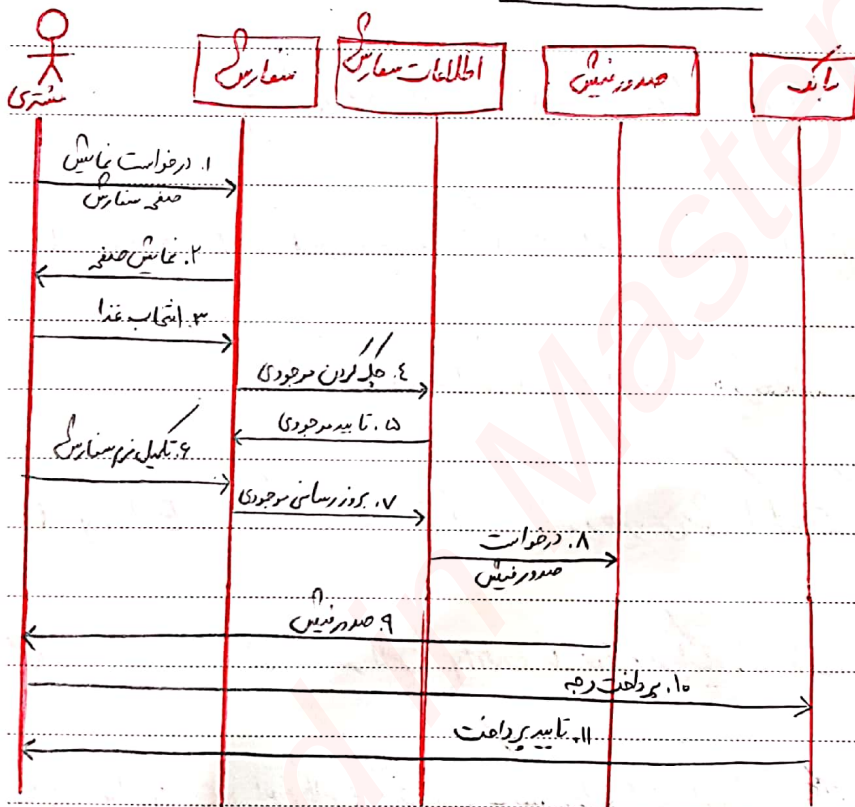 مشتری
سفارش
اطلاعات سفارش
صدور فیش
بانک
۱. درخواست نمایش
صفحه سفارش
۲. نمایش صفحه
۳. انتخاب غذا
٤. چک کردن موجودی
۵. تایید موجودی
۶. تکمیل فرم سفارش
۷. بروزرسانی موجودی
۸. درخواست
صدور فیش
۹. صدور فیش
۱۰. پرداخت وجه
۱۱. تایید پرداخت